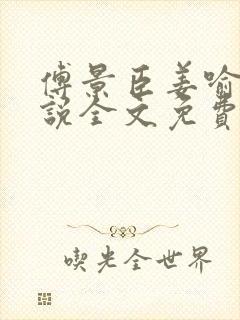 傅景臣姜喻
說全文免費
喫光全世界